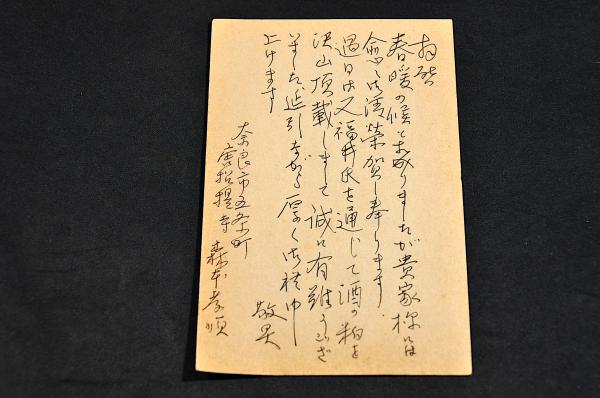 拝啓
春暖の候と相成りましたが貴家様には
愈々御清栄賀し奉ります
過日は又福井氏を通じて酒の粕を
沢山頂戴しまして誠に有難うござ
いました延引ながら厚く御礼申し
上げます
敬具
奈良市五条町
唐招提寺
森本孝順